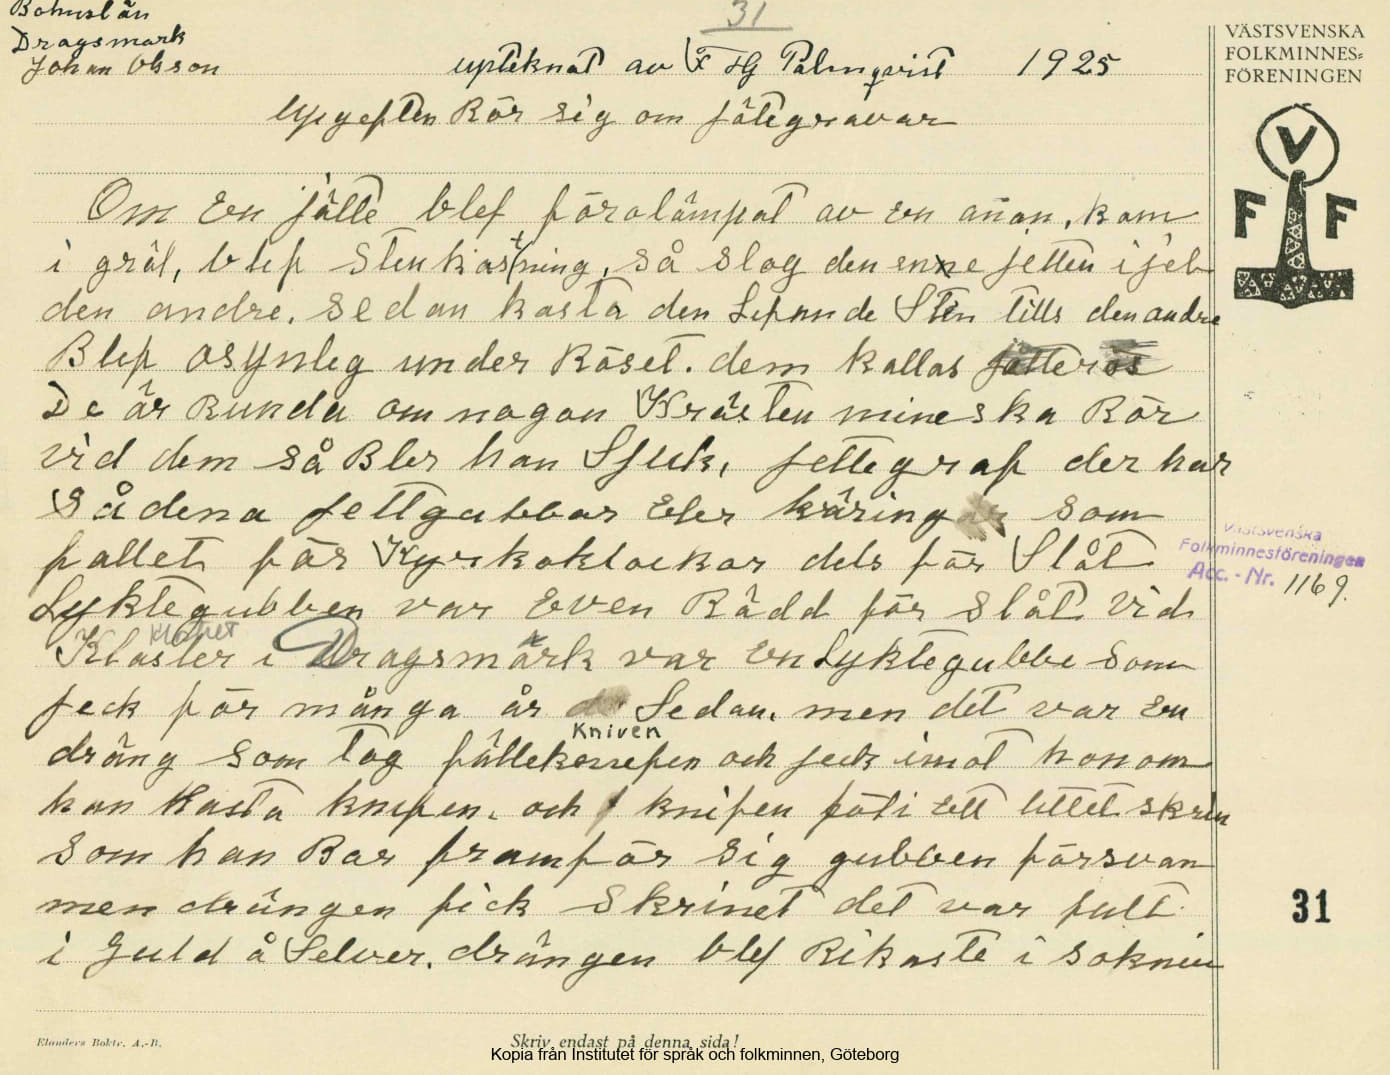 Bohuslän
Dragsmark
Johan Olsson
31
upteknat av F HG Palmqvist 1925
Upgeften Rör sig om jätegravar
VÄSTSVENSKA
FOLKMINNES=
FÖRENINGEN
V
F F
Om En jätte blef förolämpat av En añan, kom
i gräl, blef Stenkastning, så slog den enne jetten ijel
den andre. Sedan kasta den Lefvande Sten tills den andre
Blef osynleg under Röset. dem kallas jätterös
De är Runda om nogon Kristen mineska Rör
vid dem så Bler han Sjuk, jettegraf der har
Sådena jettgubbar Eler käringar som
fallet för Kyrkoklockor dels för Slåt
Lyktegubben var Even Rädd för slåt vid
Klostret
Kloster i Dragsmark var En Lyktegubbe som
feck för många år Sedan. men det var En
Kniven
dräng som tog fällekneefen och jeck imot honom
han Kasta knifen. och knifen föli Ett littet skrin
som han Bar framför sig gubben försvan
men drängen fick Skrinet det var fult
i Guld å Selver. drängen blef Rikaste i soknen
Västsvenska
Folkminnesföreningen
Acc. - Nr. 1169.
31
Elanders Boktr. A.-B.
Skriv endast på denna sida!
Kopia från Institutet för språk och folkminnen, Göteborg